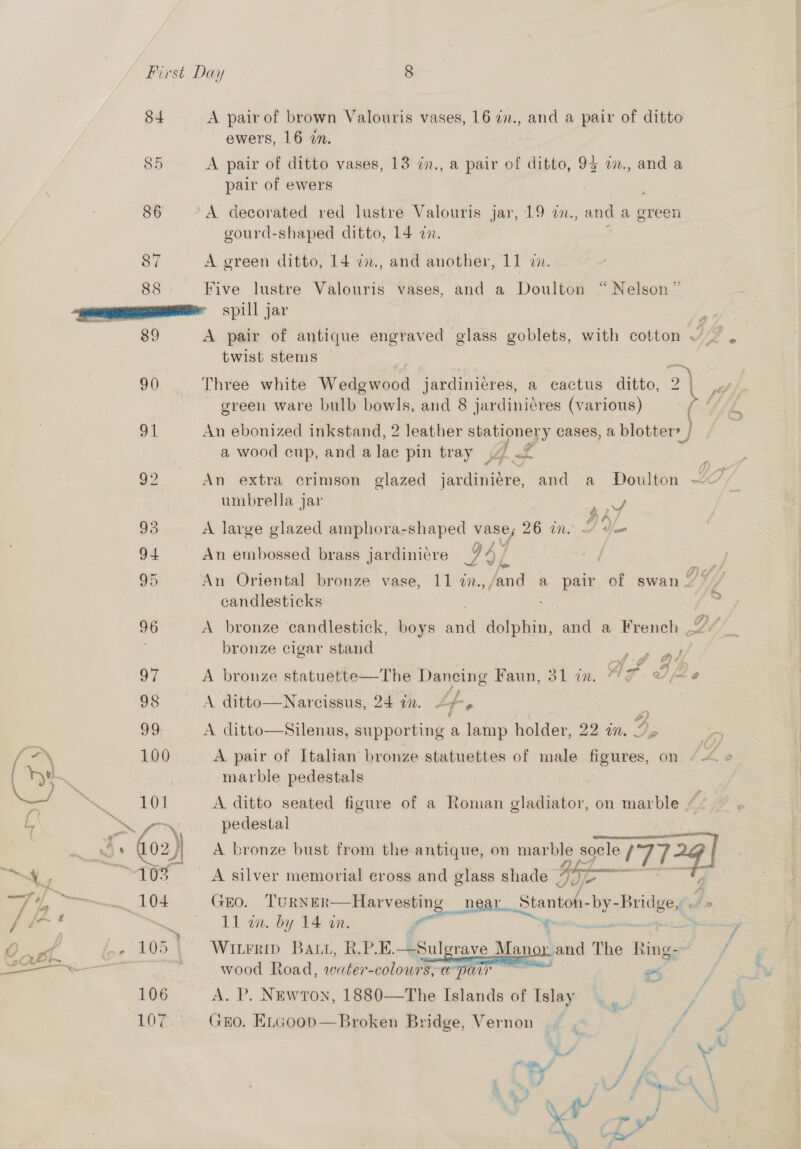 First Day 8
84 A pair of brown Valouris vases, 16 in., and a pair of ditto
ewers, 16 in.
85 A pair of ditto vases, 13 in., a pair of ditto, 9½ in., and a
pair of ewers
86 A decorated red lustre Valouris jar, 19 in., and a green
gourd-shaped ditto, 14 in.
87 A green ditto, 14 in., and another, 11 in.
88 Five lustre Valouris vases, and a Doulton “Nelson”
spill jar
89 A pair of antique engraved glass goblets, with cotton
twist stems
90 Three white Wedgwood jardinières, a cactus ditto, 2
green ware bulb bowls, and 8 jardinières (various)
91 An ebonized inkstand, 2 leather stationery cases, a blotter,
a wood cup, and a lac pin tray
92 An extra crimson glazed jardinière, and a Doulton
umbrella jar
93 A large glazed amphora-shaped vase, 26 in.
94 An embossed brass jardinière
95 An Oriental bronze vase, 11 in., and a pair of swan
candlesticks
96 A bronze candlestick, boys and dolphin, and a French
bronze cigar stand
97 A bronze statuette—The Dancing Faun, 31 in.
98 A ditto—Narcissus, 24 in.
99 A ditto—Silenus, supporting a lamp holder, 22 in.
100 A pair of Italian bronze statuettes of male figures, on
marble pedestals
101 A ditto seated figure of a Roman gladiator, on marble
pedestal
102 A bronze bust from the antique, on marble socle
103 A silver memorial cross and glass shade
104 GEO. TURNER—Harvesting near Stanton-by-Bridge,
11 in. by 14 in.
105 WILFRID BALL, R.P.E.—Sulgrave Manor and The Ring-
wood Road, water-colours, a pair
106 A. P. NEWTON, 1880—The Islands of Islay
107 GEO. ELGOOD—Broken Bridge, Vernon